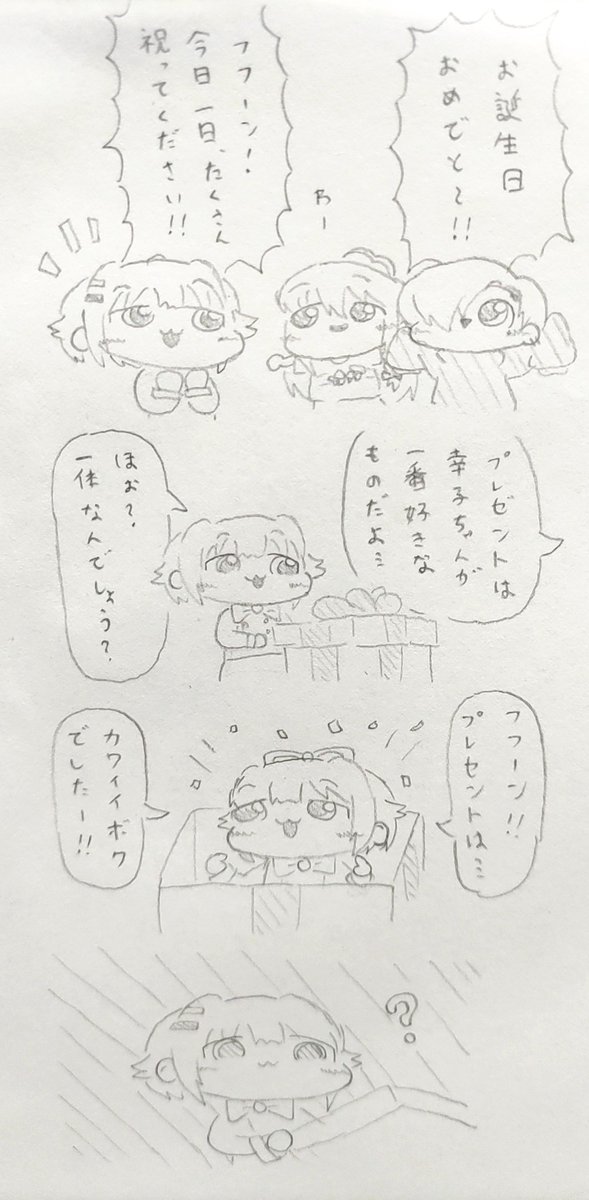 お誕生日
おめでと〜!!
わー
フフーン!
今日一日、たくさん
祝ってください!!
プレゼントは
幸子ちゃんが
一番好きな
ものだよ…
ほぉ?
一体なんでしょう?
フフーン!!
プレゼントは…
カワイイボク
でしたー!!
?